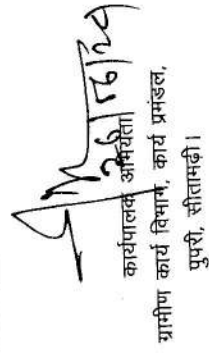 26/8/24
कार्यपालक अभियंता
ग्रामीण कार्य विभाग, कार्य प्रमंडल,
पुपरी, सीतामढ़ी।